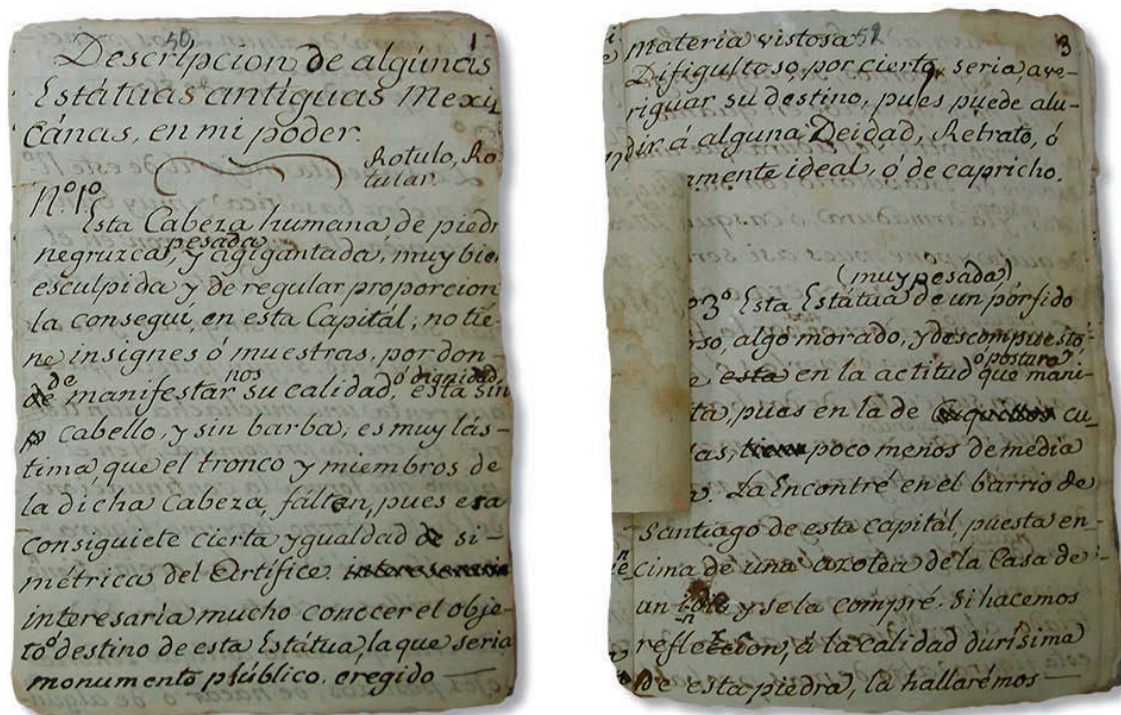 50
1
Descripcion de algúnas
Estátuas antiguas Mexi
cánas, en mi poder.
Rotulo, Ro
tular.
N.º 1º
Esta Cabeza humana de piedr
negruzca, y agigantada, muy bien
pesada
esculpida y de regular proporcion
la consegui, en esta Capitál; no tie-
ne insignes ó muestras, por don-
de manifestarnos su calidad ó dignidad, esta sin
cabello, y sin barba; es muy lás-
tima, que el tronco y miembros de
la dicha Cabeza, fálten, pues era
consiguiete cierta ygualdad de si-
métrica del Artífice.
interesaria mucho conocer el obje-
to ó destino de esta Estátua, la que seria
monumento público, eregido
materia vistosa
52
3
Difigultoso, por cierto, seria, ave-
riguar su destino, pues puede alu-
dir á alguna Deidad, Retrato, ó
amente ideal, ó de capricho.
(muy pesada)
3º Esta Estátua de un pórfido
rso, algo morado, y descompuesto
esta en la actitud o postura que mani
ta, pues en la de cu-
as, poco menos de media
La Encontré en el barrio de
Santiago de esta capitál, puesta en-
cima de una azotea de la Casa de
un y se la compré. Si hacemos
reflección, á la calidad durísima
de esta piedra, la hallarémos